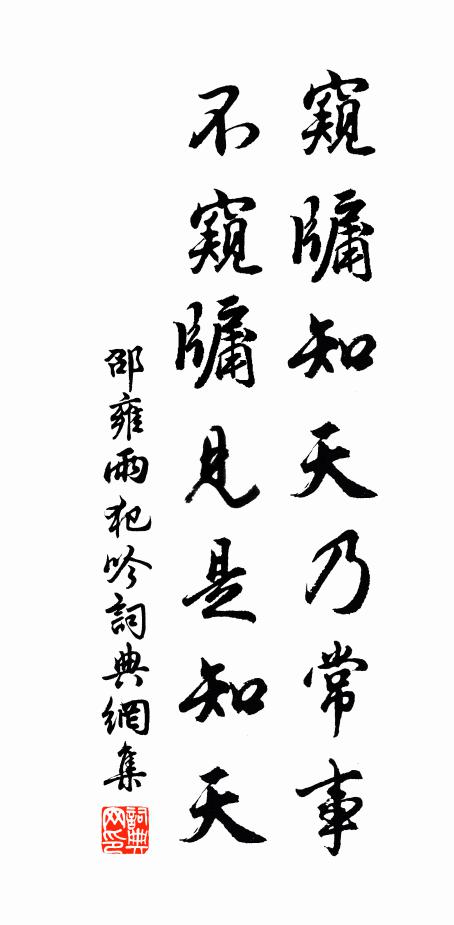 窺牖知天乃常事
不窺牖見是知天
邵雍兩犯吟詞典網集
詞典網印